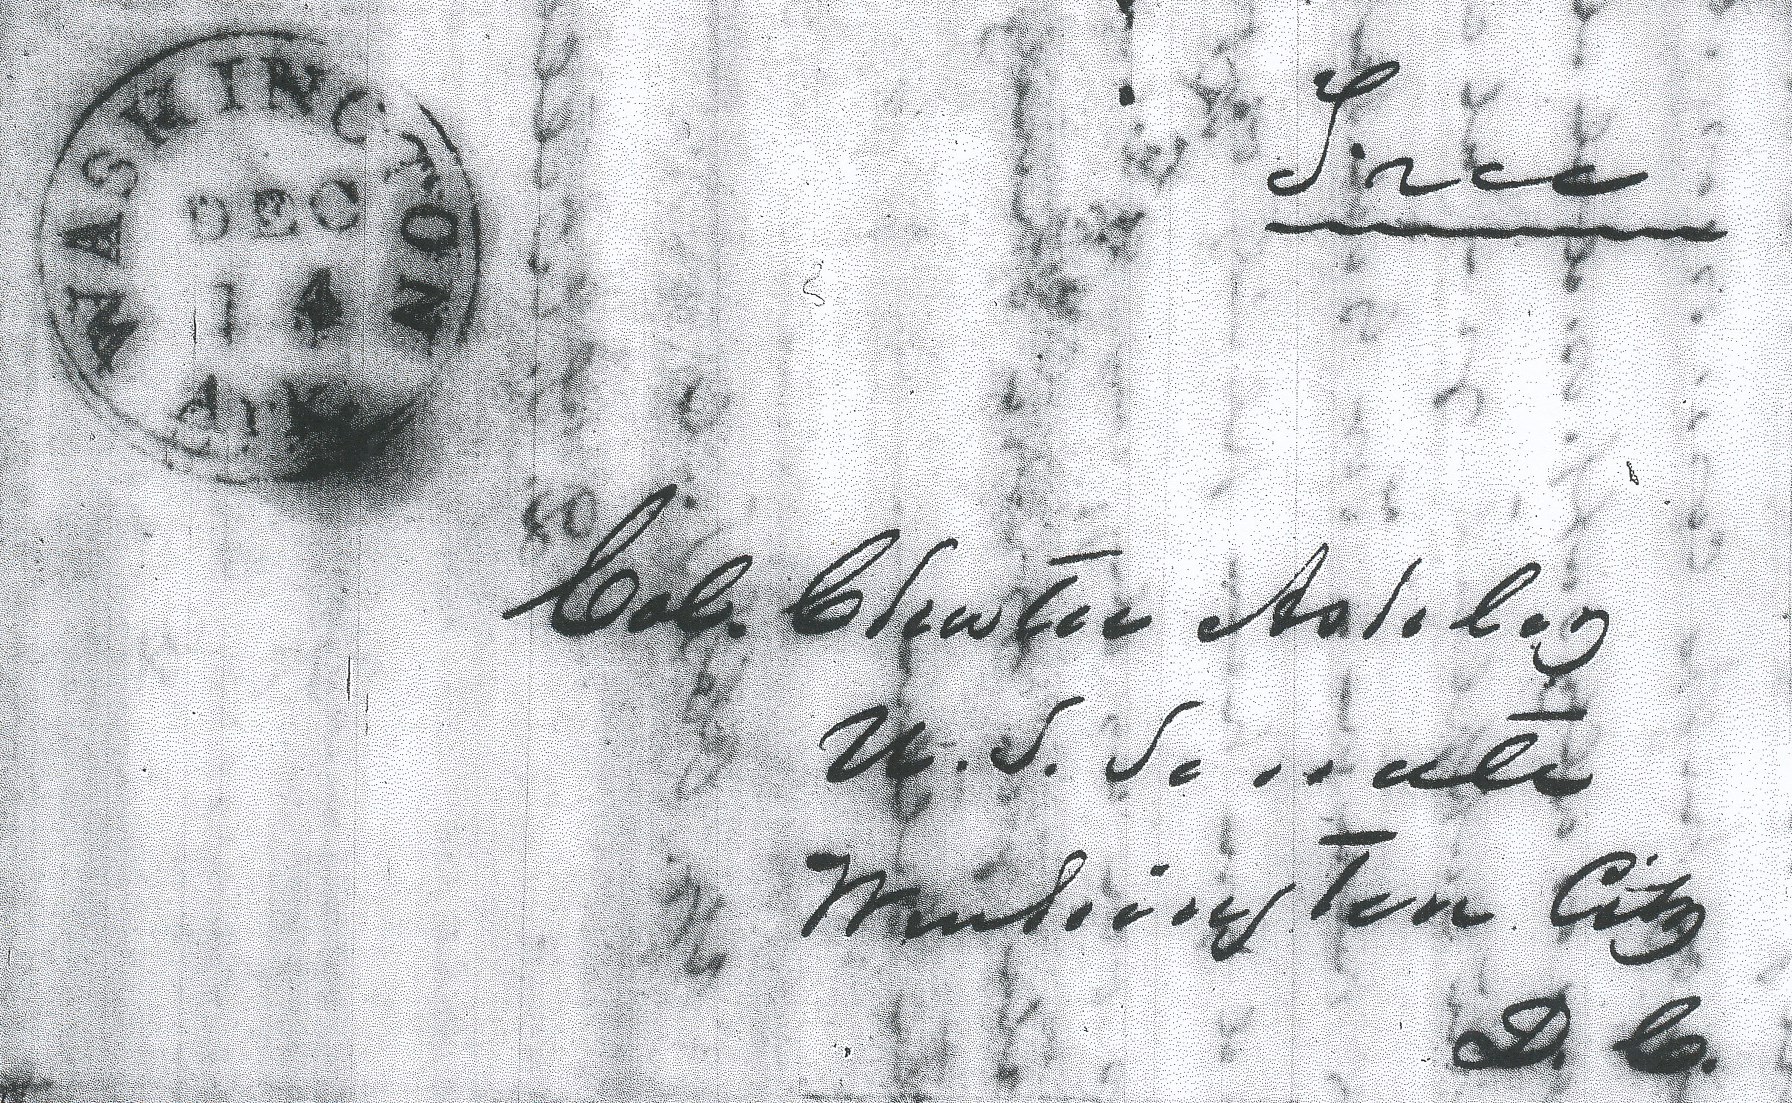 WASHINGTON
DEC
14
Ark.
Free
Col. Chester Ashley
U. S. Senate
Washington City
D. C.